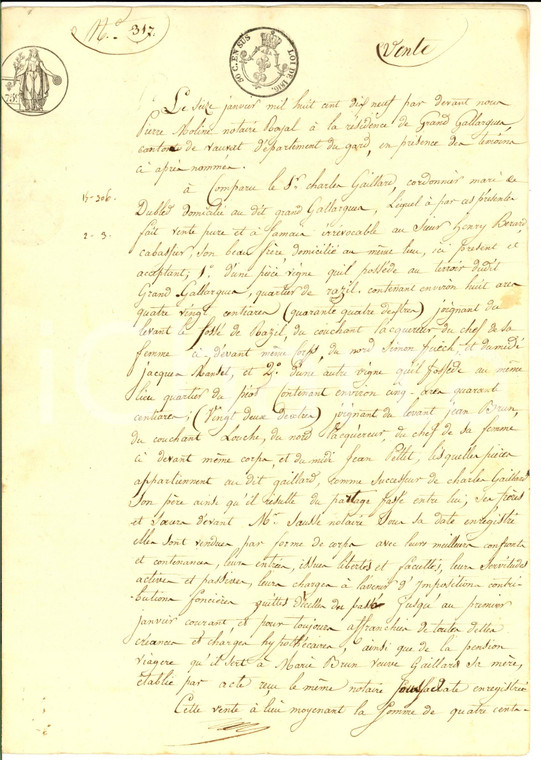 N.° 317.
Vente
50 C. EN SUS
LOI DE 1816
75 C.
Le Seize janvier mil huit cent dix neuf par devant nous
Pierre Moline notaire Royal à la résidence de Grand Gallargues,
canton de Vauvert département du gard, en présence des témoins
ci après nommés.
à Comparu le S.r charles Gaillard cordonnier mari de
Dublés domicilié au dit grand Gallargues, Lequel à par ces présentes
fait vente pure et à Jamais irrévocable au Sieur Henry Berard
cabassur, son beau frère, domicilié au même lieu, ici présent et
acceptant, 1.° d'une pièce vigne qu'il possède au terroir dudit
Grand Gallargues, quartier de razil contenant environ huit ares
quatre vingt centiares (quarante quatre destres) joignant du
levant le fossé de Razil, du couchant lacquereur du chef de sa
femme ci-devant même Corps, du nord Simon fiech, et du midi
jacques Mansel, et 2.° d'une autre vigne qu'il possède au même
lieu quartier du pirot contenant environ cinq ares quarante
centiares; (Vingt deux destres) joignant du levant jean Brun,
du couchant Louche, du nord lacquereur, du chef de sa femme
ci devant même corps, et du midi Jean Pellet, lesquelles pièces
appartiennent au dit gaillard, comme successeur de charles Gaillard
Son père ainsi qu'il résulte du partage passé entre lui, ses frères
et soeurs devant M.e Sausse notaire sous sa date enregistré
elles sont vendues par forme de corps avec leurs meilleurs confronts
et contenances, leurs entrées, issues libertés et facultés, leurs servitudes
actives et passives, leurs charges à l'avenir d'Impositions contri-
butions foncières quittes d'icelles du passé jusqu'au premier
janvier courant et pour toujours affranchies de toutes dettes
créances et charges hypothécaires, ainsi que de la pension
viagère qu'il sert à Marie Brun veuve Gaillard sa mère,
établie par acte reçu le même notaire sous sa date enregistré
Cette vente à lieu moyenant la somme de quatre cents-
15-306.
2-3.